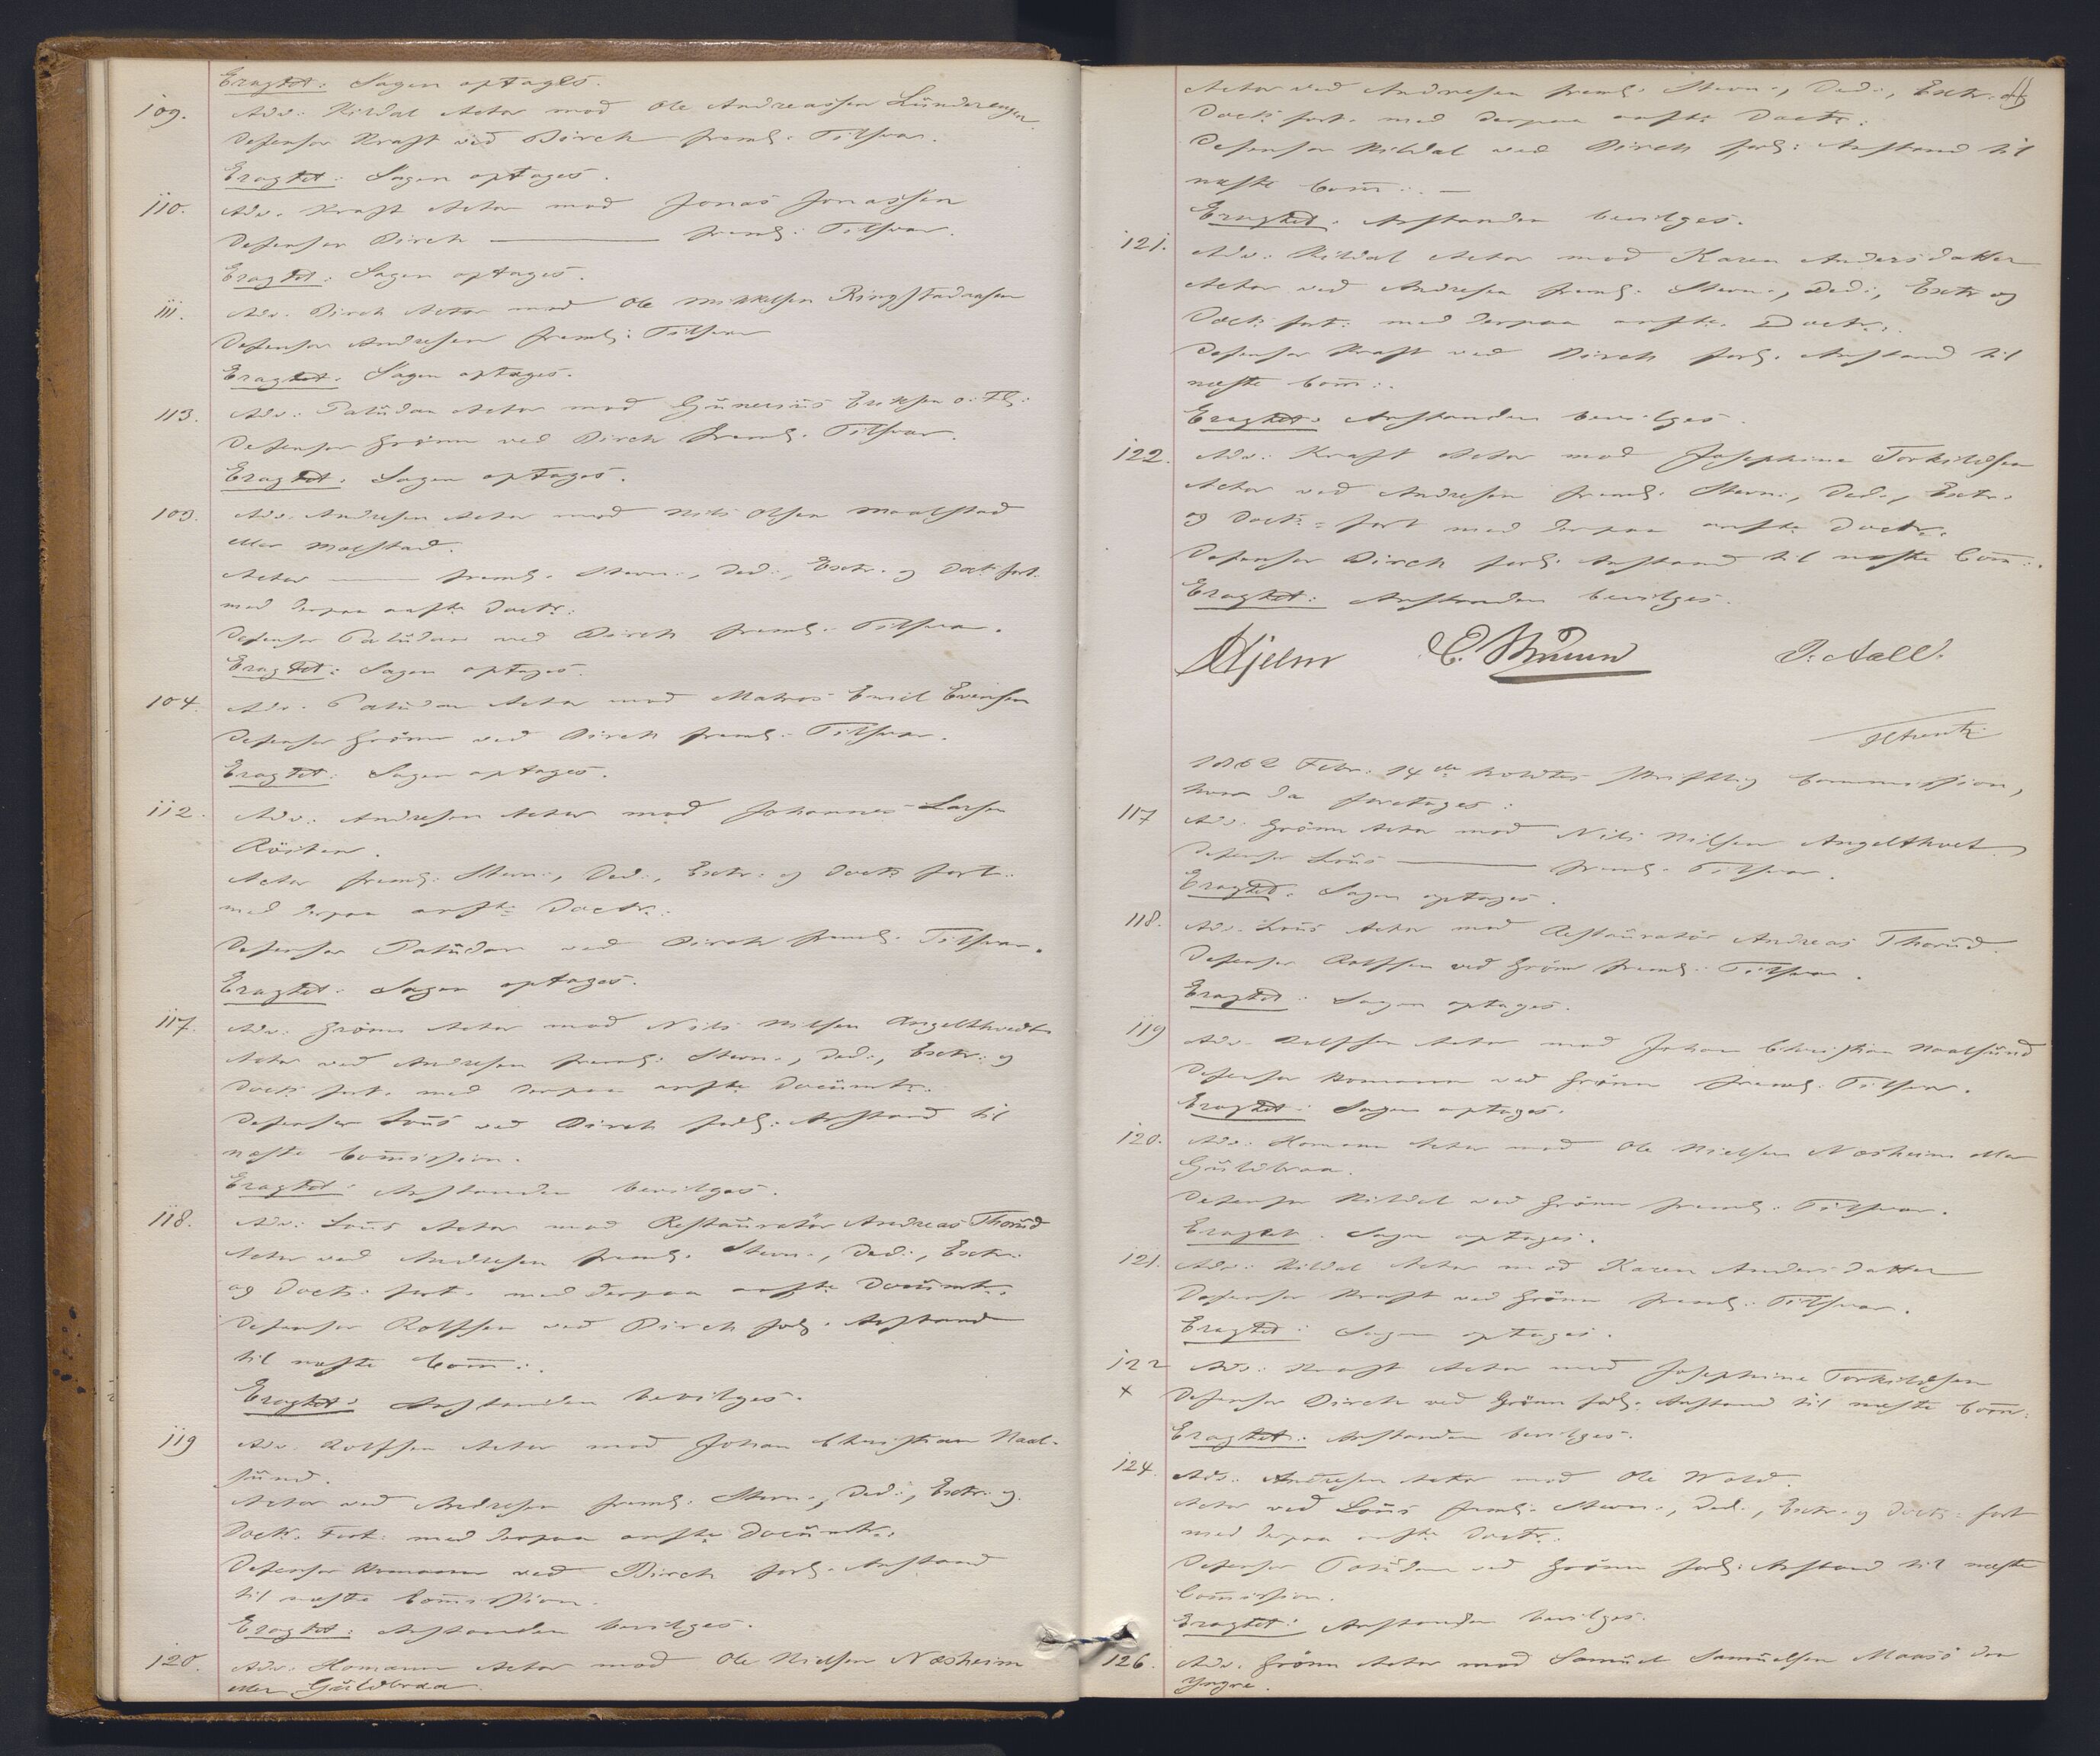 Eragtet: Sagen optages.
109. Adv: Kildal Actor mod Ole Andreassen Lunderengen
Defensor Kraft ved Dirch freml: Tilsvar.
Eragtet: Sagen optages.
110. Adv. Kraft Actor mod Jonas Jonassen
Defensor Dirch ——— freml: Tilsvar.
Eragtet: Sagen optages.
111. Adv. Dirch Actor mod Ole Mikkelsen Ringstadaasen
Defensor Andresen freml: Tilsvar
Eragtet: Sagen optages.
113. Adv: Paludan Actor mod Gunerius Eriksen o: Fl:
Defensor Grönn ved Dirch freml. Tilsvar.
Eragtet: Sagen optages.
103. Adv. Andresen Actor mod Nils Olsen Maalstad
eller Molstad.
Actor —— freml. Stevn:, Ded:, Extr: og Doct: fort.
med derpaa anfte Doctr:
Defensor Paludan ved Dirch freml. Tilsvar.
Eragtet: Sagen optages.
104. Adv. Paludan Actor mod Matros Emil Evensen
Defensor Grönn ved Dirch freml. Tilsvar.
Eragtet: Sagen optages.
112. Adv. Andresen Actor mod Johannes Larsen
Röisten.
Actor freml: Stevn:, Ded:, Extr: og Doct: fort:
med derpaa anfte Doctr:
Defensor Paludan ved Dirch freml. Tilsvar.
Eragtet: Sagen optages.
117. Adv: Grönn Actor mod Nils Nilsen Angelthvedt
Actor ved Andresen freml: Stevn:, Ded:, Extr: og
Doct: fort. med derpaa anfte Documtr.
Defensor Lous ved Dirch forl: Anstand til
næste Commission.
Eragtet: Anstanden bevilges.
118. Adv: Lous Actor mod Restauratör Andreas Thorud
Actor ved Andresen freml. Stevn:, Ded:, Extr:
og Doct: fort. med derpaa anfte Documtr.
Defensor Rolfsen ved Dirch forl. Anstand
til næste Comm:.
Eragtet: Anstanden bevilges.
119 Adv. Rolfsen Actor mod Johan Christian Naal-
sund.
Actor ved Andresen freml: Stevn:, Ded:, Extr: og
Doct: Fort: med derpaa anfte Documtr.
Defensor Homann ved Dirch forl. Anstand
til næste Commission.
Eragtet: Anstanden bevilges.
120. Adv: Homann Actor mod Ole Nielsen Næsheim
eller Guldbraa.
Actor ved Andresen freml: Stevn:, Ded:, Extr: og
Doct: fort. med derpaa anfte Doctr:
Defensor Kildal ved Dirch forl: Anstand til
næste Comm:. —
Eragtet: Anstanden bevilges.
121. Adv: Kildal Actor mod Karen Andersdatter
Actor ved Andresen freml: Stevn:, Ded:, Extr og
Doct: fort: med derpaa anfte. Doctr:.
Defensor Kraft ved Dirch forl. Anstand til
næste Comm:.
Eragtet: Anstanden bevilges.
122. Adv: Kraft Actor mod Josephine Torkildsen
Actor ved Andresen freml. Stevn:, Ded., Extr:
og Doct: fort med derpaa anfte Doctr.
Defensor Dirch forl. Anstand til næste Comm:.
Eragtet: Anstanden bevilges.
Hjelm C. Bruun J. Aall.
1862 Febr. 14de holdtes skriftlig Commission,
hvor da foretoges:
117 Adv. Grönn Actor mod Nils Nilsen Angelthvet
Defensor Lous ——— freml. Tilsvar.
Eragtet. Sagen optages.
118. Adv. Lous Actor mod Restauratör Andreas Thorud.
Defensor Rolfsen ved Grönn freml: Tilsvar.
Eragtet: Sagen optages.
119 Adv. Rolfsen Actor mod Johan Christian Naalsund
Defensor Homann ved Grönn freml. Tilsvar.
Eragtet: Sagen optages.
120. Adv: Homann Actor mod Ole Nielsen Næsheim eller
Guldbraa.
Defensor Kildal ved Grönn freml: Tilsvar.
Eragtet. Sagen optages.
121. Adv: Kildal Actor mod Karen Andersdatter
Defensor Kraft ved Grönn freml: Tilsvar.
Eragtet: Sagen optages.
122 Adv: Kraft Actor mod Josephine Torkildsen
x Defensor Dirch ved Grönn forl. Anstand til næste Comm:
Eragtet: Anstanden bevilges.
124. Adv. Andresen Actor mod Ole Wold.
Actor ved Lous freml. Stevn:, Ded:, Extr: og Doct: fort
med derpaa anfte Doctr.
Defensor Paludan ved Grönn forl: Anstand til næste
Commission.
Eragtet: Anstanden bevilges.
126. Adv. Grönn Actor mod Samuel Samuelsen Maasö den
Yngre.